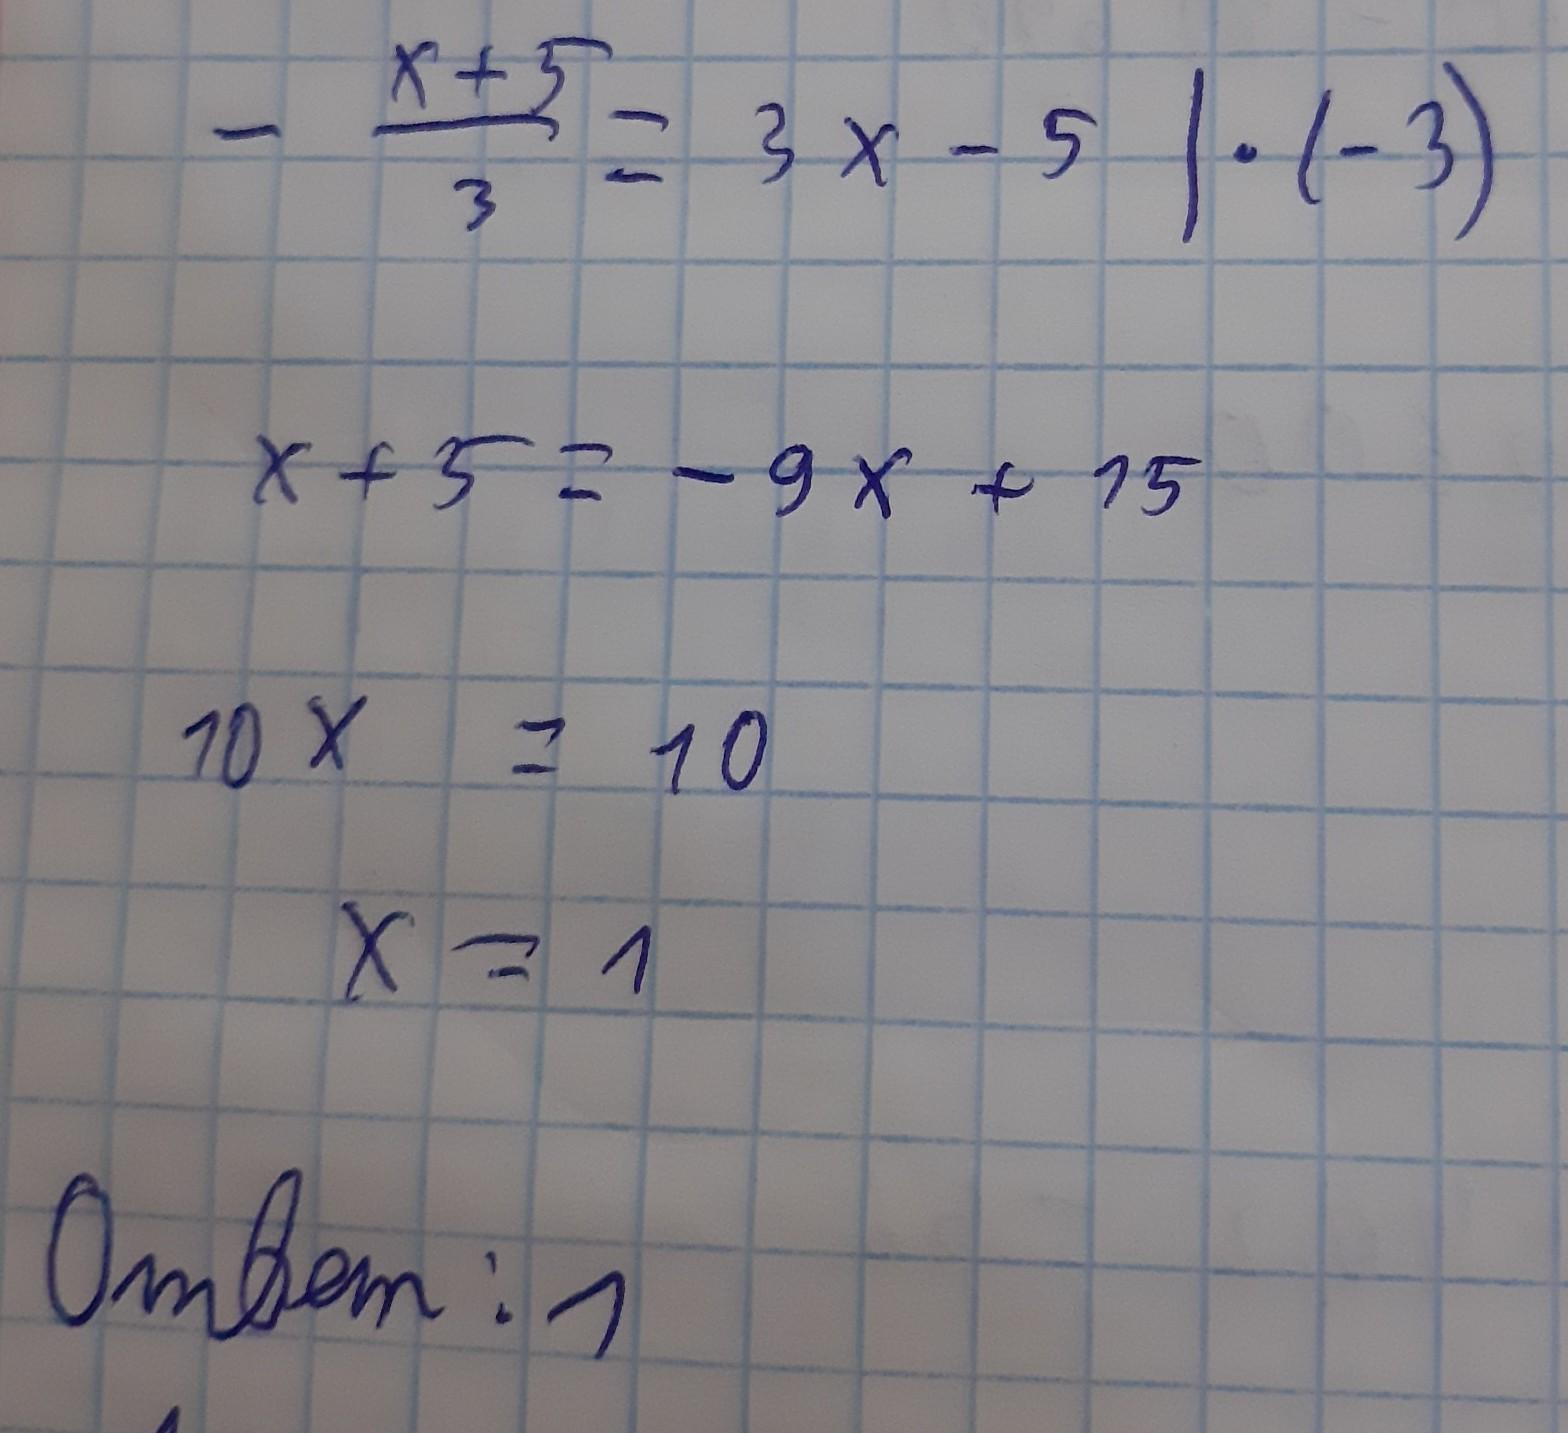 - (x+5)/3 = 3x - 5 | · (-3)
x + 5 = - 9x + 15
10x = 10
x = 1
Ответ: 1